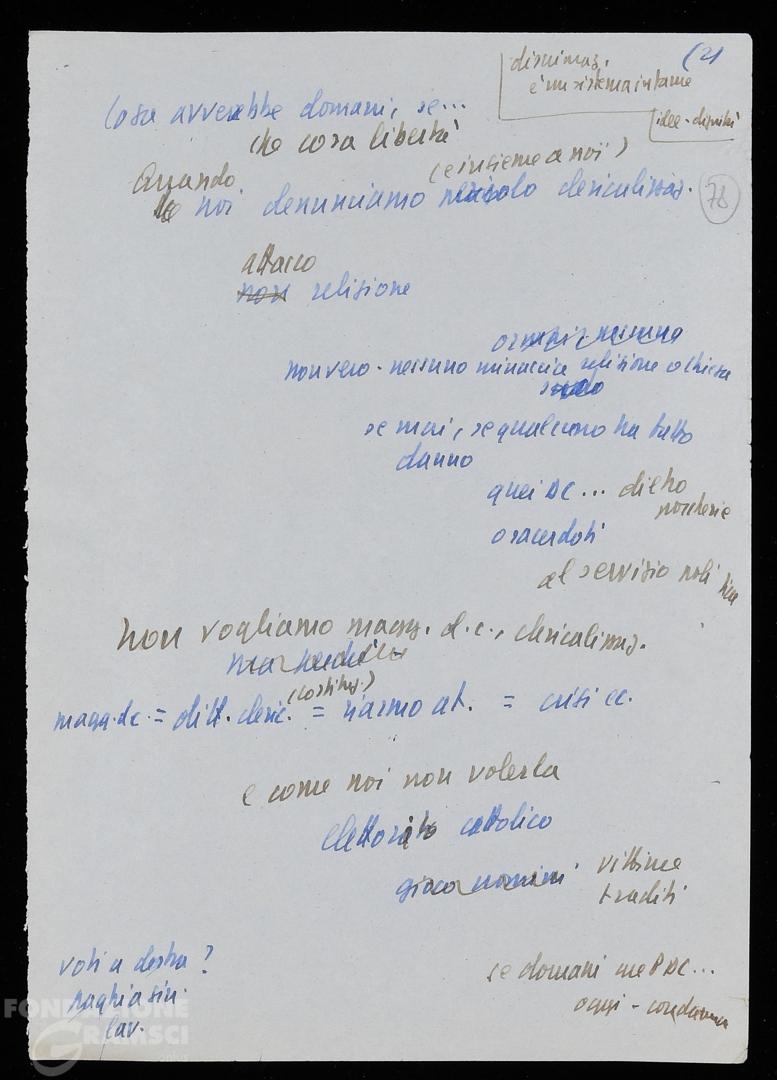 (21
discrimaz.
è un sistema infame
idee - dignità
Cosa avverebbe domani, se...
che cosa libertà
(e insieme a noi)
Quando
se noi denunciamo pericolo clericalizzaz.
78
attacco
non religione
ormai nessuno
non vero - nessuno minaccia religione o chiesa
se mai, se qualcuno ha fatto
danno
quei DC... dietro
o sacerdoti
al servizio politica
non vogliamo magg. d.c., clericalizzaz.
ma perché
(costituz.)
magg. dc. = ditt. cleric. = riarmo at. = crisi ec.
e come noi non volerla
elettorato cattolico
vittime
traditi
voti a destra?
paghi a sin.
lav.
se domani DC...
oggi - condanna
FONDAZIONE
GRAMSCI
onlus